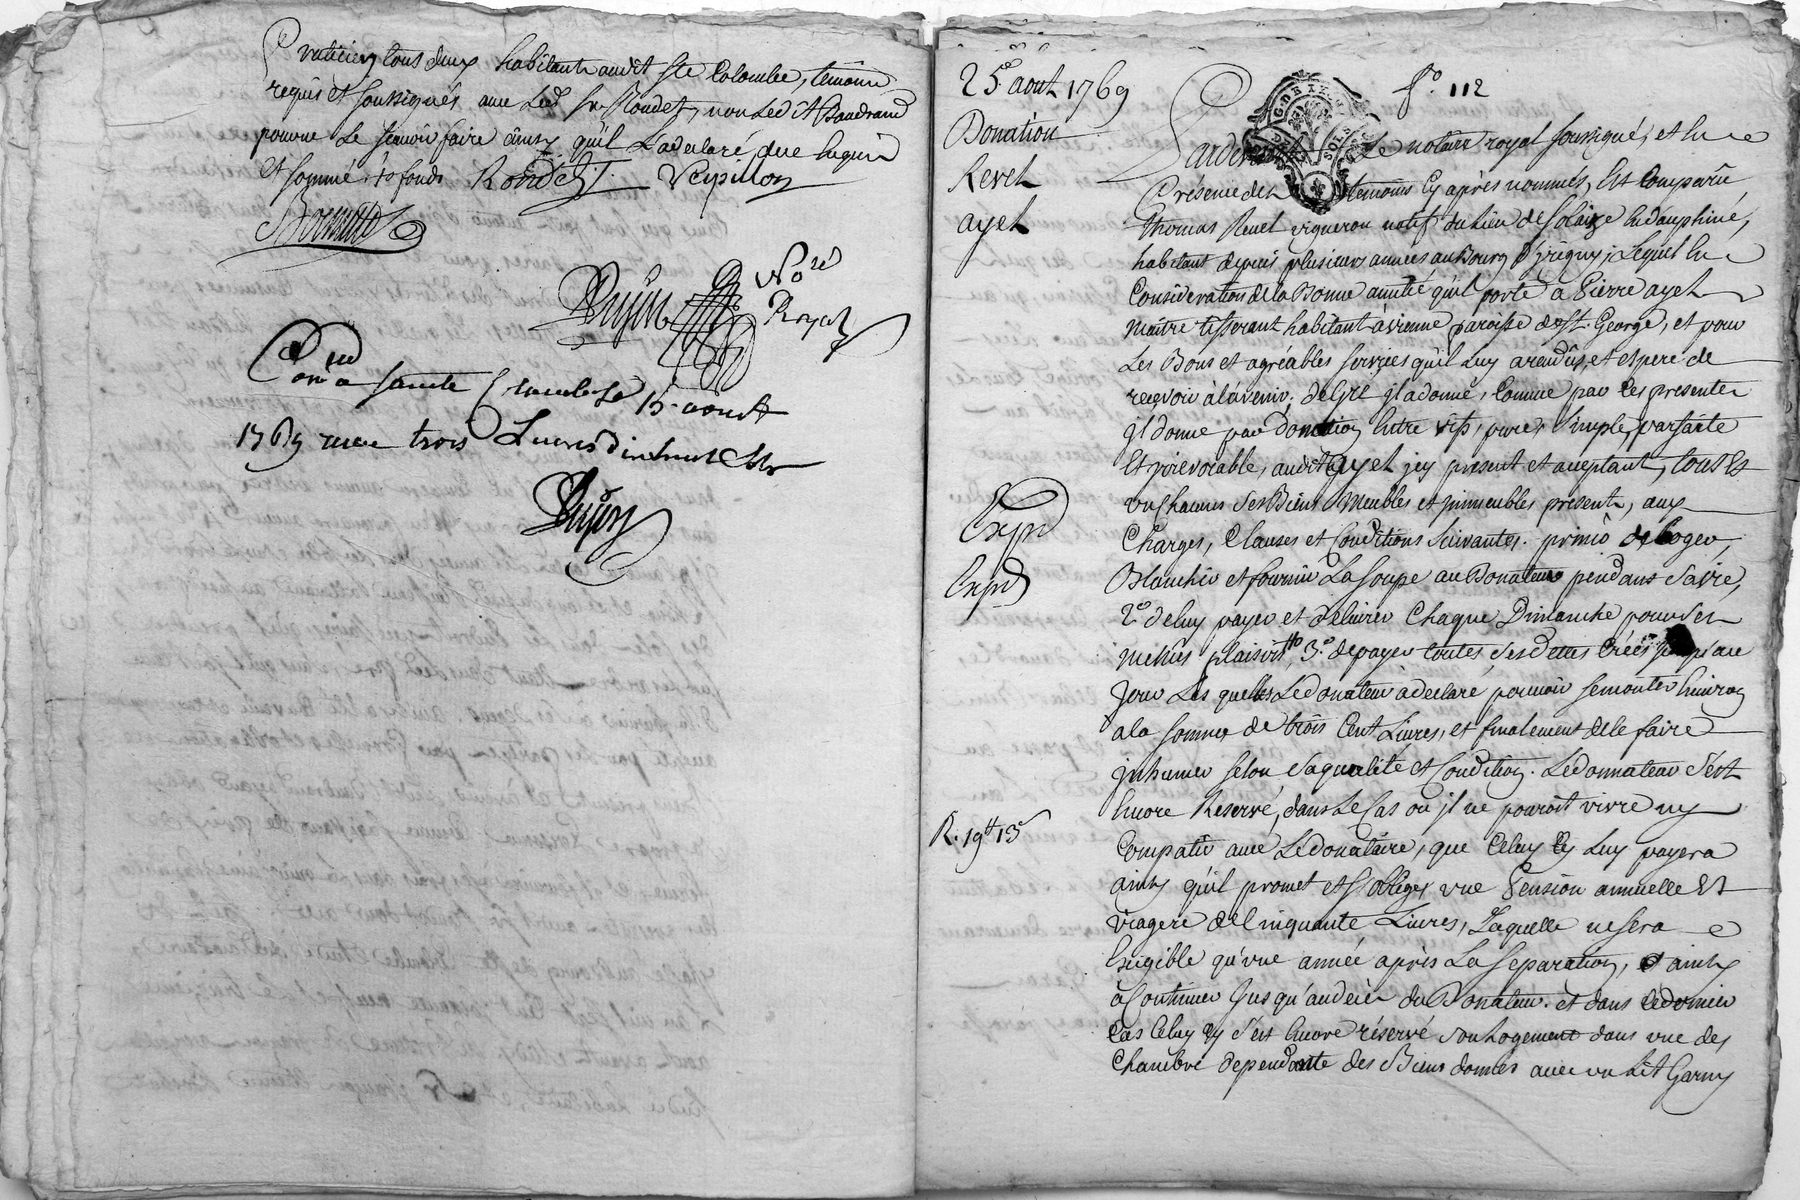 praticien tous deux habitants audit Ste Colombe, témoins
requis et soussignés avec led. Sr Rondet, non led. st Baudrand
pour ne le scavoir faire ainsy qu'il l'a declaré, due enquis
et sommé
Rondet
No re
Royal
Con. a Sainte Colombe le 15 aoust
1769 reçu trois Livres dix huit sols
25. aout 1769
Donation
Revet
ayet
Expd
Expd
R. 19tt 13s
fo. 112
Pardevant Le notaire royal soussigné, et en
Presence des temoins cy après nommés, Est Comparu
Thomas Revet vigneron natif du lieu de Solaize en dauphiné,
habitant depuis plusieurs années au Bourg d'yrigny; Lequel en
Consideration de la Bonne amitié qu'il porte a Pierre ayet
maitre tisserant habitant à vienne paroisse de St. George, et pour
Les Bons et agréables services qu'il luy a rendûs, et espere de
recevoir à l'avenir; de gré jl a donné, Comme par Ces presentes
jl donne par donation Entre vifs, pure, simple, parfaite
Et jrrevocable, audit ayet jcy present et acceptant, tous Et
un Chacuns ses Biens Meubles et jmmeubles présents, aux
Charges, Clauses et Conditions suivantes. primò de loger,
Blanchir et fournir La soupe au Donateur pendant sa vie,
2o de luy payer et delivrer Chaque Dimanche pour ses
menus plaisirs 3.o de payer toutes ses dettes Créés jusqu'au
jour Les quelles Le donateur a declaré pouvoir se monter Environ
a la somme de trois Cent Livres, et finalement de le faire
jnhumer selon sa qualité et Condition. Le donnateur s'est
Encore Reservé, dans Le Cas ou jl ne pouroit vivre ny
Compatir avec Le donataire, que Celuy Cy Luy payera
ainsy qu'il promet et s'oblige, une Pension annuelle Et
viagere de Cinquante Livres, Laquelle ne sera
Exigible qu'une année après La separation, et ainsy
à Continuer jusqu'au decès du Donateur. et dans Ce dernier
Cas Celuy Cy s'est Encore réservé son Logement dans une des
Chambre dependante des Biens donnés avec un Lit Garny